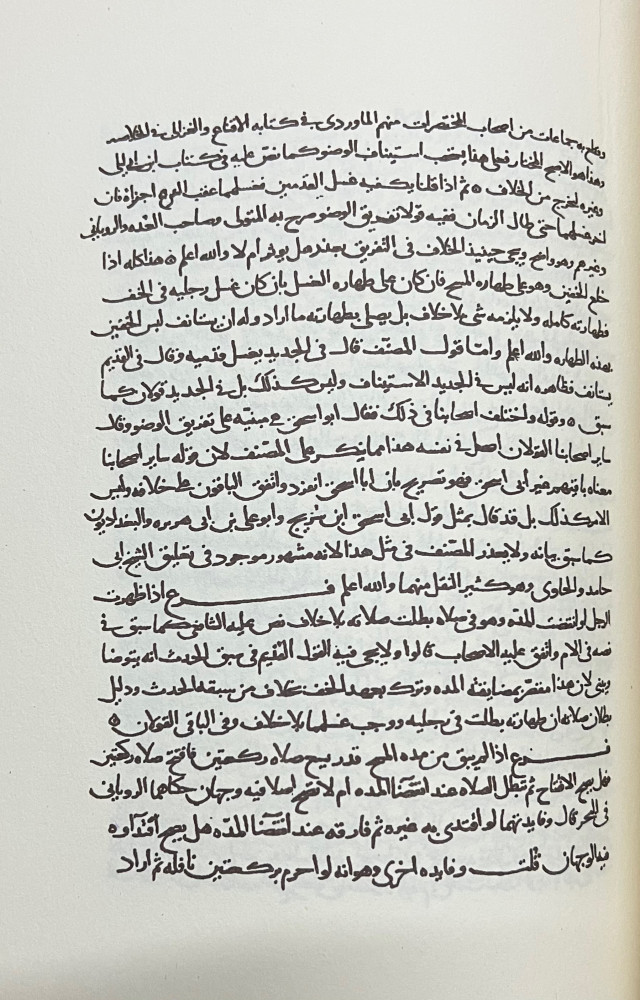 وقطع به جماعات من اصحاب المختصرات منهم الماوردى فى كتابه الاقناع والغزالى فى الخلاصه
وهذا هو الاصح المختار فعلى هذا يستحب استيناف الوضو كما نص عليه فى كتاب ابن ابى ليلى
وغيره لخرج من الخلاف ه ثم اذا قلنا يكفيه غسل القدمين فغسلهما عقب النزع اجزاه فان
اخر غسلهما حتى طال الزمان ففيه قولا تفريق الوضو صرح به المتولى وصاحب العده والرويانى
وغيرهم وهو واضح ويجى حينيذ الخلاف فى التفريق بعذر هل يوثر ام لا والله اعلم ه هذا كله اذا
خلع الخفين وهو على طهاره المسح فان كان على طهاره الغسل بان كان غسل رجليه فى الخف
فطهارته كامله ولا يلزمه شى بلا خلاف بل يصلى بطهارته ما اراد وله ان يستانف لبس الخفين
بهذه الطهاره والله اعلم واما قول المصنف قال فى الجديد يغسل قدميه وقال فى القديم
يستانف فظاهره انه ليس فى الجديد الاستيناف وليس كذلك بل فى الجديد قولان كما
سبق ه وقوله واختلف اصحابنا فى ذلك فقال ابو اسحق هى مبنيه على تفريق الوضو وقال
ساير اصحابنا القولان اصل فى نفسه هذا مما ينكر على المصنف لان قوله ساير اصحابنا
معناه باقيهم غير ابى اسحق فهو تصريح بان ابا اسحق انفرد واتفق الباقون على خلافه وليس
الامر كذلك بل قد قال بمثل قول ابى اسحق ابن سريج وابو على بن ابى هريره والبغداديون
كما سبق بيانه ولا يعذر المصنف فى مثل هذا لانه مشهور موجود فى تعليق الشيخ ابى
حامد والحاوى وهو كثير النقل منهما والله اعلم فرع اذا ظهرت
الرجل او انقضت المده وهو فى صلاه بطلت صلاته بلا خلاف نص عليه الشافعى كما سبق فى
نصه فى الام واتفق عليه الاصحاب قالوا ولا يجى فيه القول القديم فى سبق الحدث انه يتوضا
ويبنى لان هذا مقصر بمضايقة المده وتركه تعهد الخف بخلاف من سبقه الحدث ودليل
بطلان صلاته ان طهارته بطلت فى رجليه ووجب غسلهما بلا خلاف وفى الباقى القولان ه
فرع اذا لم يبق من مده المسح قدر يسع صلاه ركعتين فافتتح صلاه ركعتين
فهل يصح الافتتاح ثم تبطل الصلاه عند انقضا المده ام لا تصح اصلا فيه وجهان حكاهما الرويانى
فى البحر قال وفايدتهما لو اقتدى به غيره ثم فارقه عند انقضا المده هل يصح اقتداوه
فيه الوجهان قلت وفايده اخرى وهو انه لو احرم بركعتين نافله ثم اراد